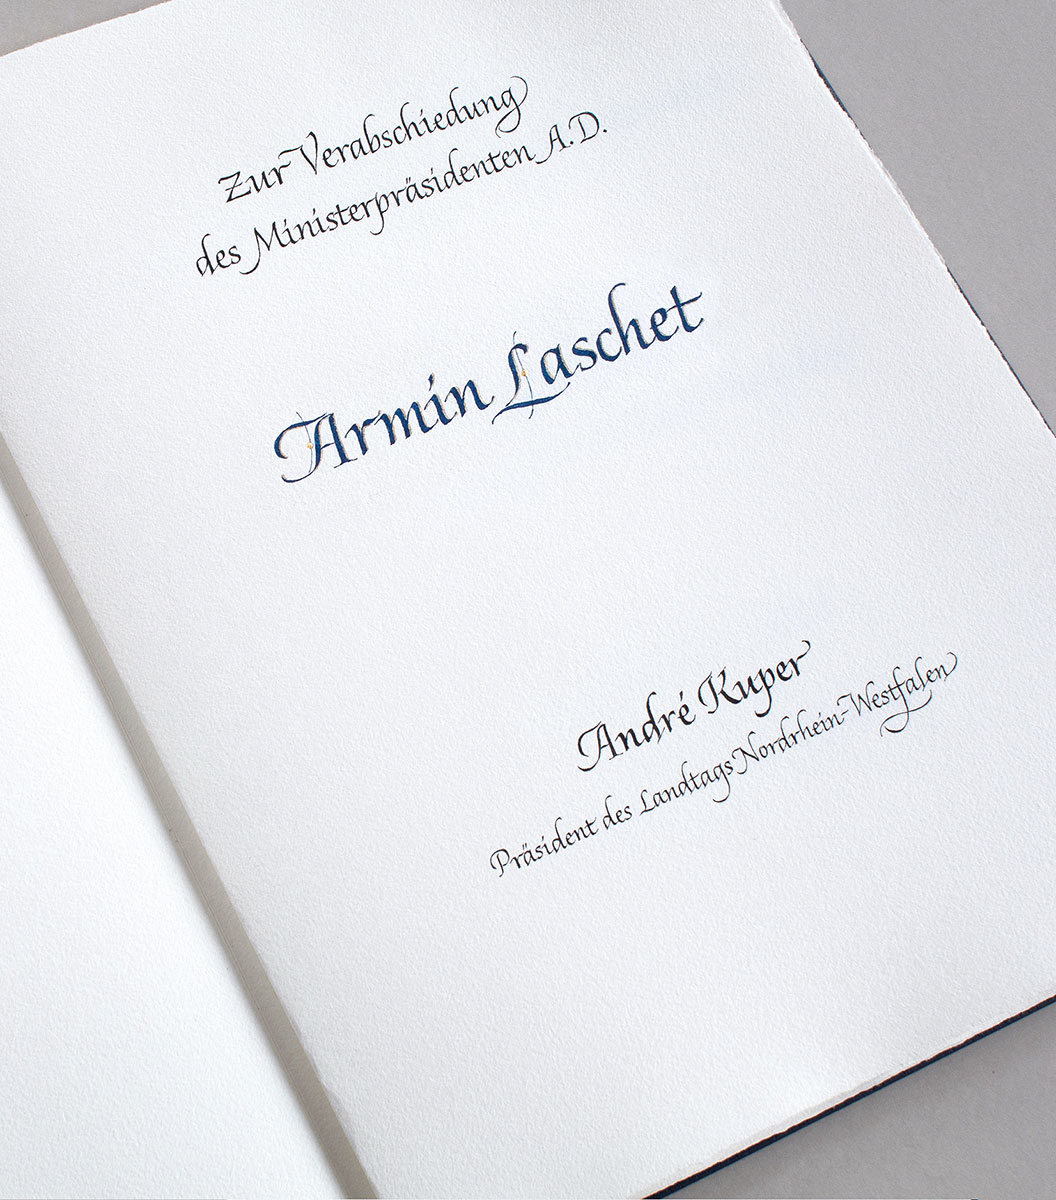 Zur Verabschiedung
des Ministerpräsidenten A.D.
Armin Laschet
André Kuper
Präsident des Landtags Nordrhein-Westfalen